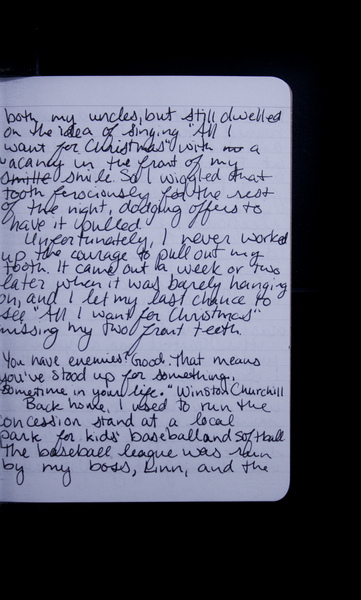 both my uncles, but still dwelled
on the idea of singing "All I
want for Christmas" with no a
vacancy in the front of my
smille smile. So I wiggled that
tooth ferociously for the rest
of the night, dodging offers to
have it pulled.
Unfortunately, I never worked
up the courage to pull out my
tooth. It came out a week or two
later when it was barely hanging
on, and I let my last chance to
see "All I want for Christmas"
missing my two front teeth.
You have enemies? Good. That means
you've stood up for something,
sometime in your life." Winston Churchill
Back home, I used to run the
concession stand at a local
park for kids' baseball and softball
The baseball league was run
by my boss, Linn, and the